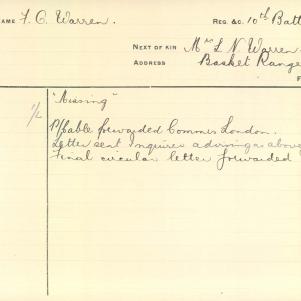 NAME F. C. Warren. REG. &C. 10th Batt
NEXT OF KIN Mrs L. N. Warren
ADDRESS Basket Range
"Missing"
1/2
P/Cable forwarded Commrs London.
Letter sent inquirer advising as above
Final circular letter forwarded